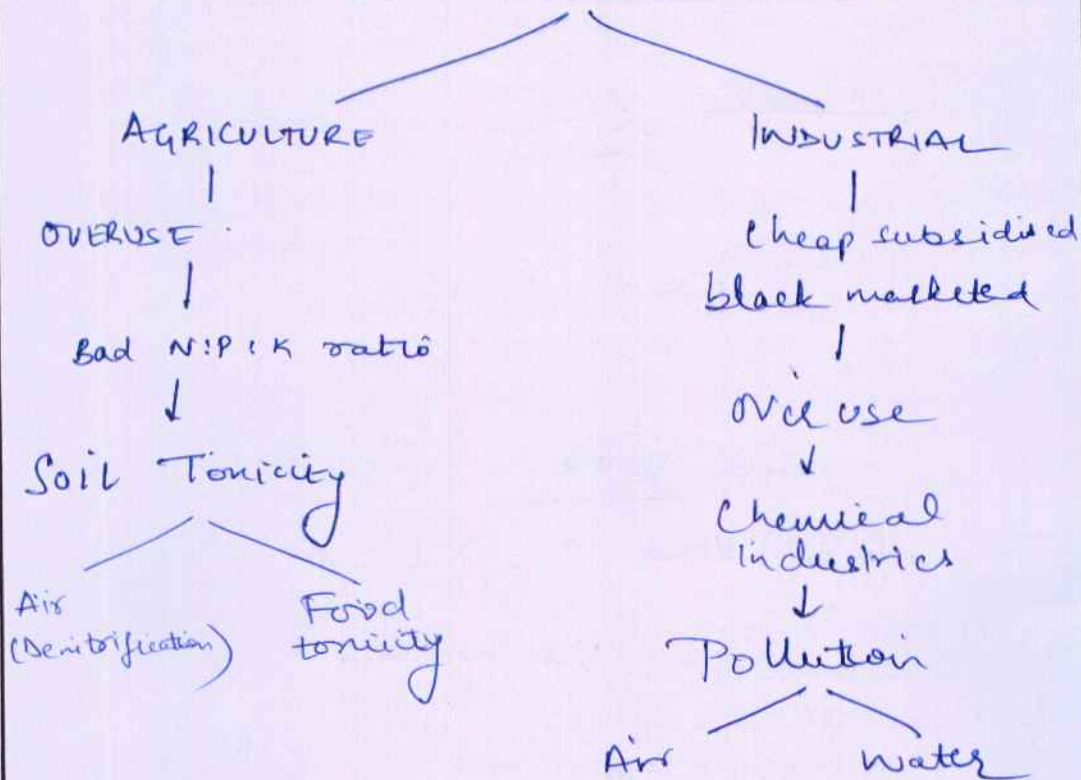 AGRICULTURE
OVERUSE
Bad N:P:K ratio
Soil Toxicity
Air
(Denitrification)
Food
toxicity
INDUSTRIAL
Cheap subsidised
black marketed
Over use
Chemical
industries
Pollution
Air
Water